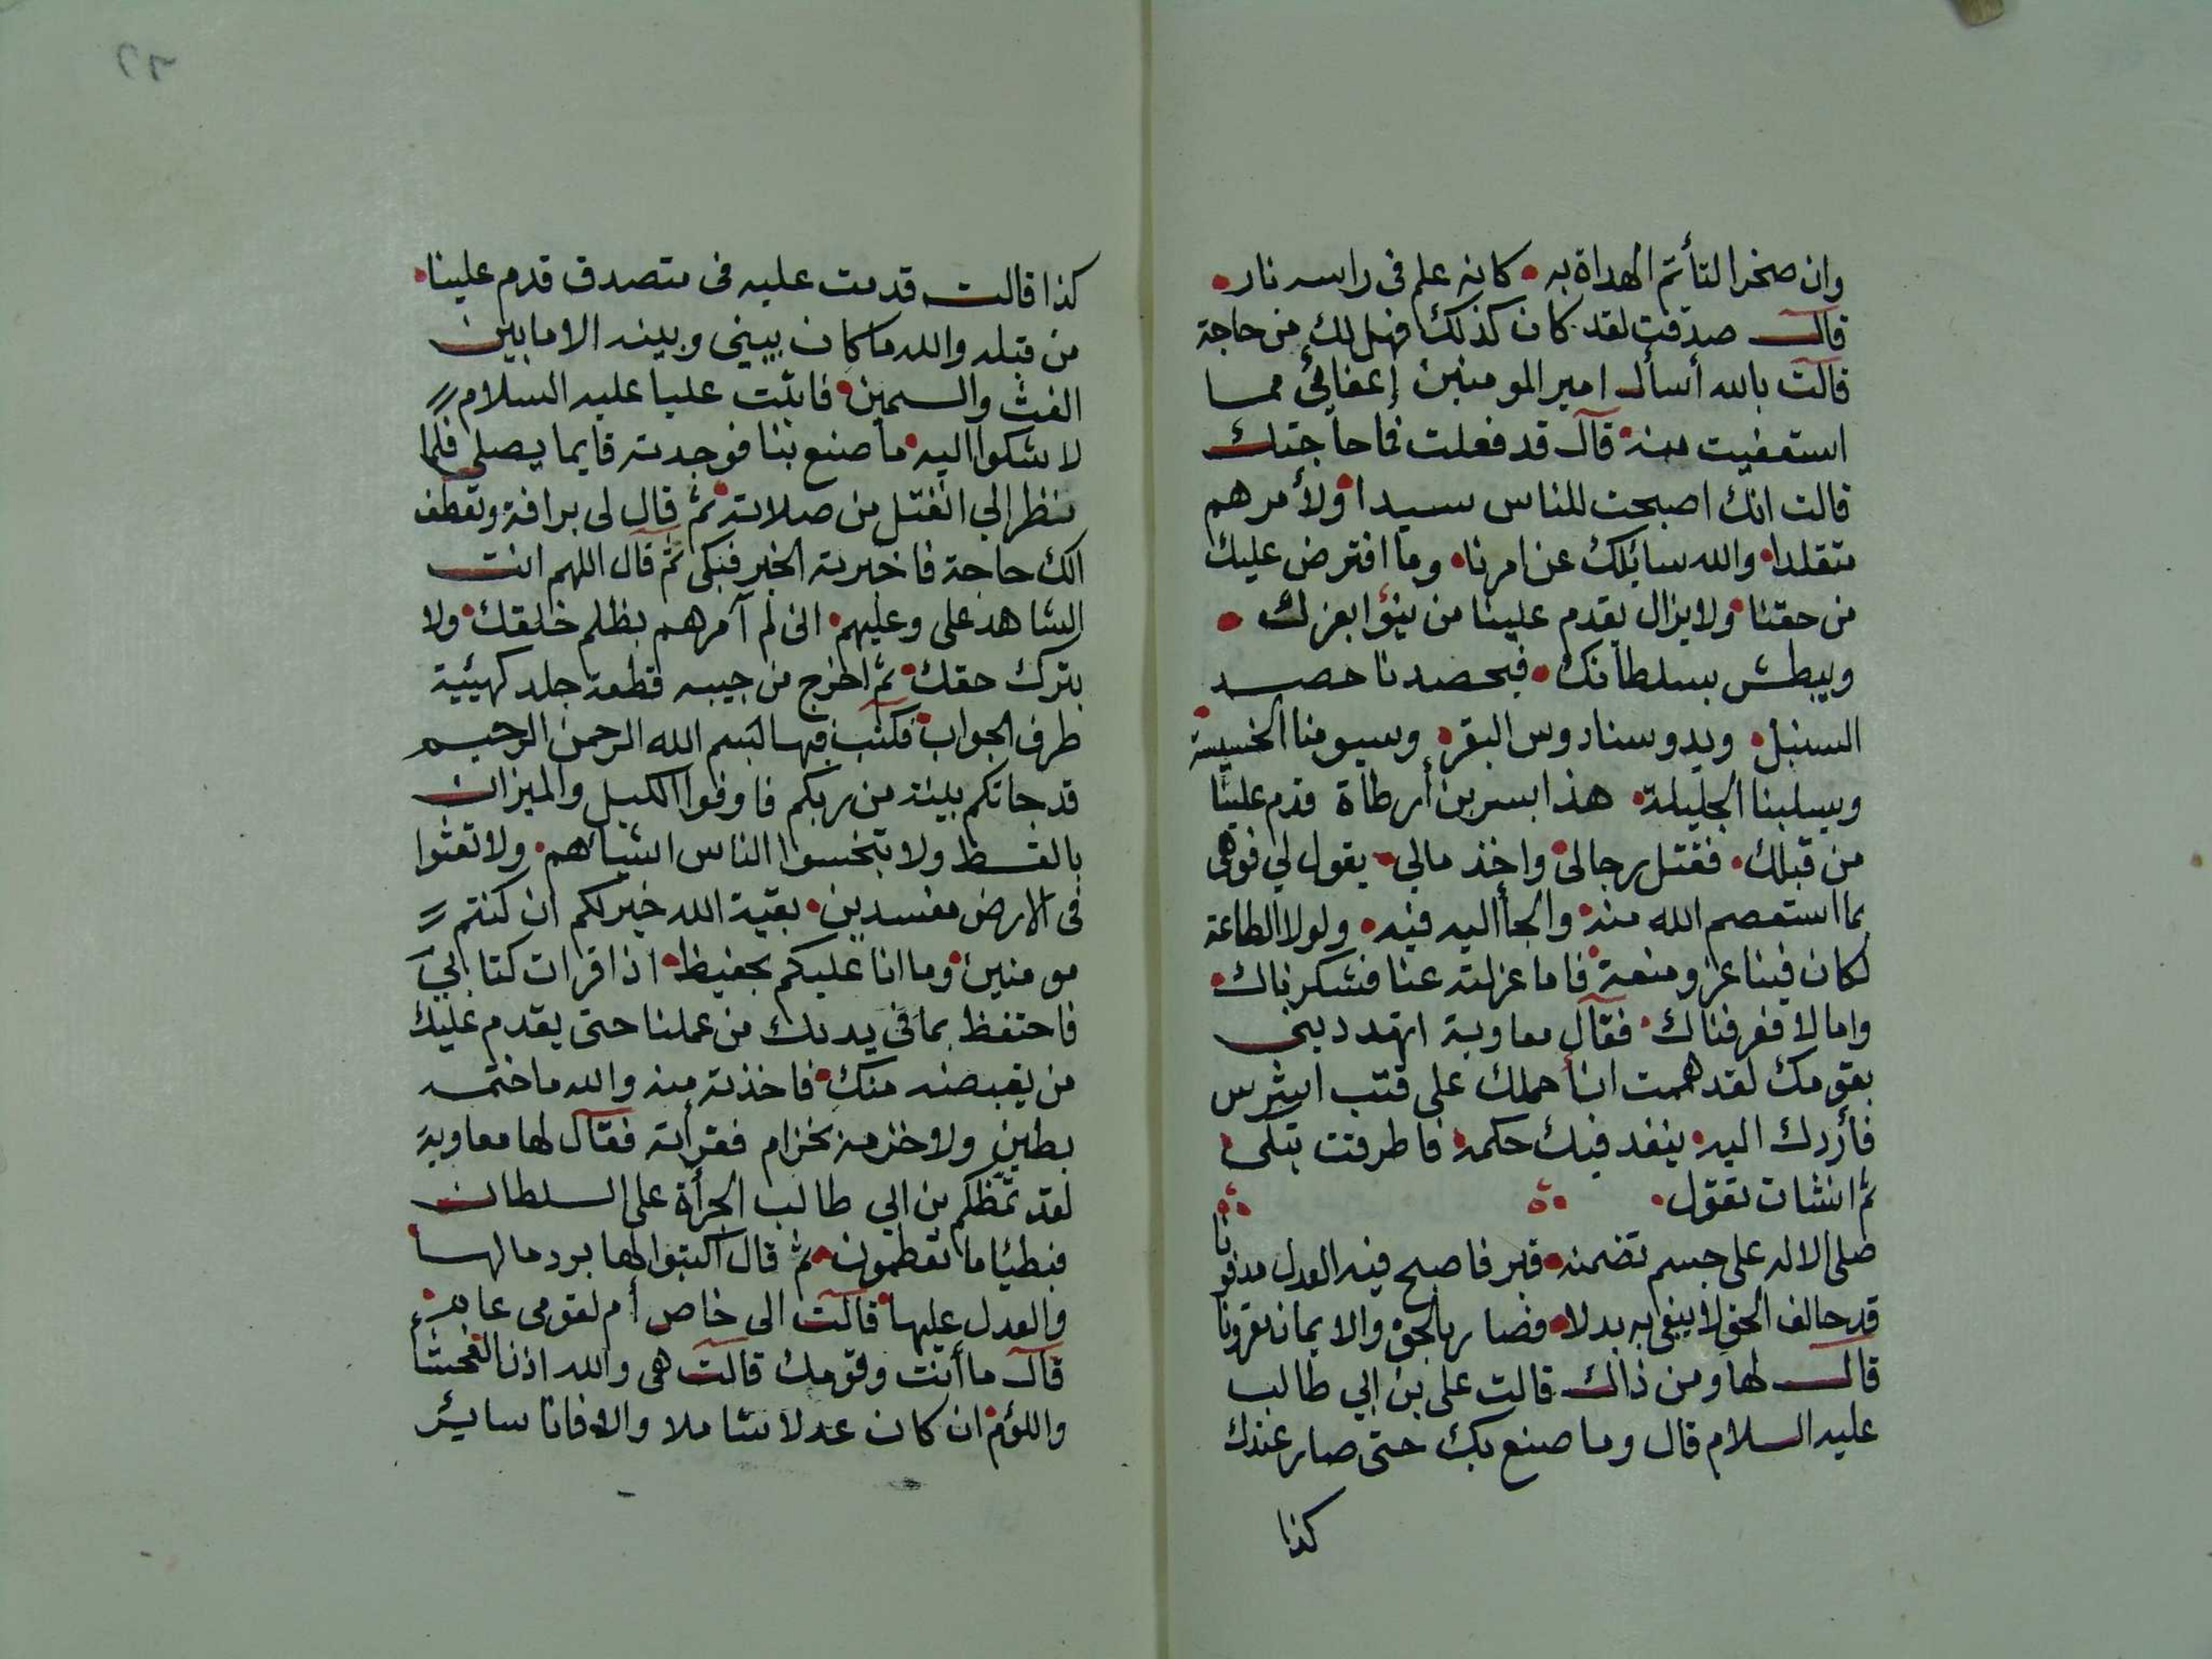 وان صخرا لتأتم الهداة به • كانه علم فى راسه نار •
قال صدقت لقد كان كذلك فهل لك من حاجة
قالت بالله أسأل امير المومنين إعفائى مما
استعفيت منه • قال قد فعلت فما حاجتك
قالت انك اصبحت للناس سيدا • ولأمرهم
متقلدا • والله سايلك عن امرنا • وما افترض عليك
من حقنا • ولا يزال يقدم علينا من ينؤا بعزك •
ويبطش بسلطانك • فيحصدنا حصد
السنبل • ويدوسنا دوس البقر • ويسومنا الخسيسة •
ويسلبنا الجليلة • هذا بسر بن أرطاة قدم علينا
من قبلك • فقتل رجالى • واخذ مالي • يقول لي فوهى
بما استعصم الله منه • والجأ اليه فيه • ولولا الطاعة
لكان فينا عز ومنعة • فاما عزلته عنا فشكرناك •
واما لا فعرفناك • فقال معاوية اتهددينى
بقومك لقد هممت ان أحملك على قتب اشرس
فأردك اليه • ينفذ فيك حكمه • فاطرقت تبكى •
ثم انشات تقول •
صلى الاله على جسم تضمنه • قبر فاصبح فيه العدل مدفونا
قد حالف الحق لا يبغى به بدلا • فصار بالحق والايمان مقرونا
قال لها ومن ذالك قالت على بن ابي طالب
عليه السلام قال وما صنع بك حتى صار عندك
كذا
كذا قالت قدمت عليه فى متصدق قدم علينا •
من قبله والله ما كان بينى وبينه الا ما بين
الغث والسمين • فاتيت عليا عليه السلام
لاشكوا اليه • ما صنع بنا فوجدته قايما يصلى فلما
نظر الي انفتل من صلاته • ثم قال لى برافة وتعطف
الك حاجة فاخبرته الخبر فبكى ثم قال اللهم انت
الشاهد على وعليهم • انى لم آمرهم بظلم خلقك • ولا
بترك حقك • ثم اخرج من جيبه قطعة جلد كهيئية
طرف الجواب • فكتب فيها بسم الله الرحمن الرحيم
قد جاتكم بينة من ربكم فاوفوا الكيل والميزان
بالقسط ولا تبخسوا الناس اشياهم • ولا تعثوا
فى الارض مفسدين • بقية الله خير لكم ان كنتم
مومنين • وما انا عليكم بحفيظ • اذا قرات كتابي
فاحتفظ بما فى يديك من عملنا حتى يقدم عليك
من يقبضه منك • فاخذته منه والله ما ختمه
بطين ولا خزمه بخزام فقرأته فقال لها معاوية
لقد لمظكم بن ابي طالب الجرأة على السلطان
فبطيئا ما تفطمون • ثم قال اكتبوا لها برد مالها •
والعدل عليها • قالت الى خاص أم لقومى عامه •
قال ما أنت وقومك قالت هى والله اذن الفحشاء
واللؤم • ان كان عدلا شاملا والا فانا ساير